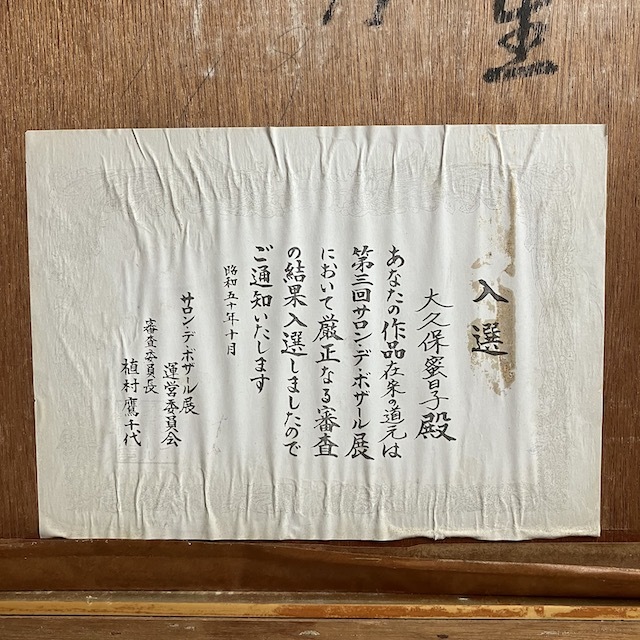 生
入選
大久保蜜子殿
あなたの作品在来の道元は
第三回サロン・デ・ボザール展
において厳正なる審査
の結果入選しましたので
ご通知いたします
昭和五十年十月
サロン・デ・ボザール展
運営委員会
審査委員長
植村鷹千代